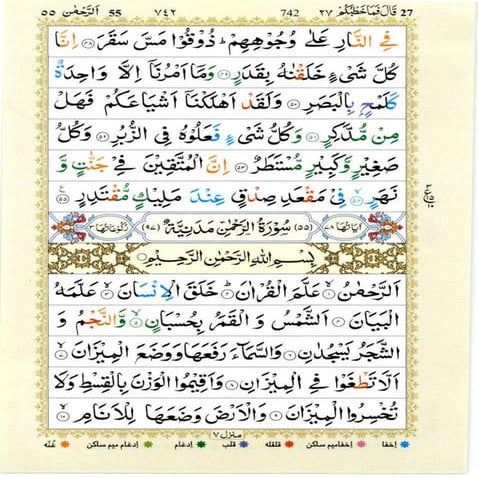 27 قَالَ فَمَا خَطْبُكُمْ ٢٧ 742 ٧٤٢ 55 اَلرَّحْمٰن ٥٥
فِى النَّارِ عَلٰى وُجُوْهِهِمْ ؕ ذُوْقُوْا مَسَّ سَقَرَ ﴿۴۸﴾ اِنَّا
كُلَّ شَىْءٍ خَلَقْنٰهُ بِقَدَرٍ ﴿۴۹﴾ وَمَاۤ اَمْرُنَاۤ اِلَّا وَاحِدَةٌ
كَلَمْحٍۢ بِالْبَصَرِ ﴿۵۰﴾ وَلَقَدْ اَهْلَكْنَاۤ اَشْيَاعَكُمْ فَهَلْ
مِنْ مُّدَّكِرٍ ﴿۵۱﴾ وَكُلُّ شَىْءٍ فَعَلُوْهُ فِى الزُّبُرِ ﴿۵۲﴾ وَكُلُّ
صَغِيْرٍ وَّكَبِيْرٍ مُّسْتَطَرٌ ﴿۵۳﴾ اِنَّ الْمُتَّقِيْنَ فِىْ جَنّٰتٍ وَّ
نَهَرٍ ﴿۵۴﴾ فِىْ مَقْعَدِ صِدْقٍ عِنْدَ مَلِيْكٍ مُّقْتَدِرٍ ﴿۵۵﴾
اٰيَاتُهَا ٧٨ (٥٥) سُوْرَةُ الرَّحْمٰنِ مَدَنِيَّةٌ (٩٧) رُكُوْعَاتُهَا ٣
بِسْمِ اللهِ الرَّحْمٰنِ الرَّحِيْمِ
اَلرَّحْمٰنُ ﴿۱﴾ عَلَّمَ الْقُرْاٰنَ ﴿۲﴾ خَلَقَ الْاِنْسَانَ ﴿۳﴾ عَلَّمَهُ
الْبَيَانَ ﴿۴﴾ اَلشَّمْسُ وَ الْقَمَرُ بِحُسْبَانٍ ﴿۵﴾ وَّالنَّجْمُ وَ
الشَّجَرُ يَسْجُدٰنِ ﴿۶﴾ وَالسَّمَآءَ رَفَعَهَا وَوَضَعَ الْمِيْزَانَ ﴿۷﴾
اَلَّا تَطْغَوْا فِى الْمِيْزَانِ ﴿۸﴾ وَاَقِيْمُوا الْوَزْنَ بِالْقِسْطِ وَلَا
تُخْسِرُوا الْمِيْزَانَ ﴿۹﴾ وَالْاَرْضَ وَضَعَهَا لِلْاَنَامِ ﴿۱۰﴾
منزل ٧
اخفا اخفامیم ساکن قلقله قلب ادغام ادغام میم ساکن غُنّه